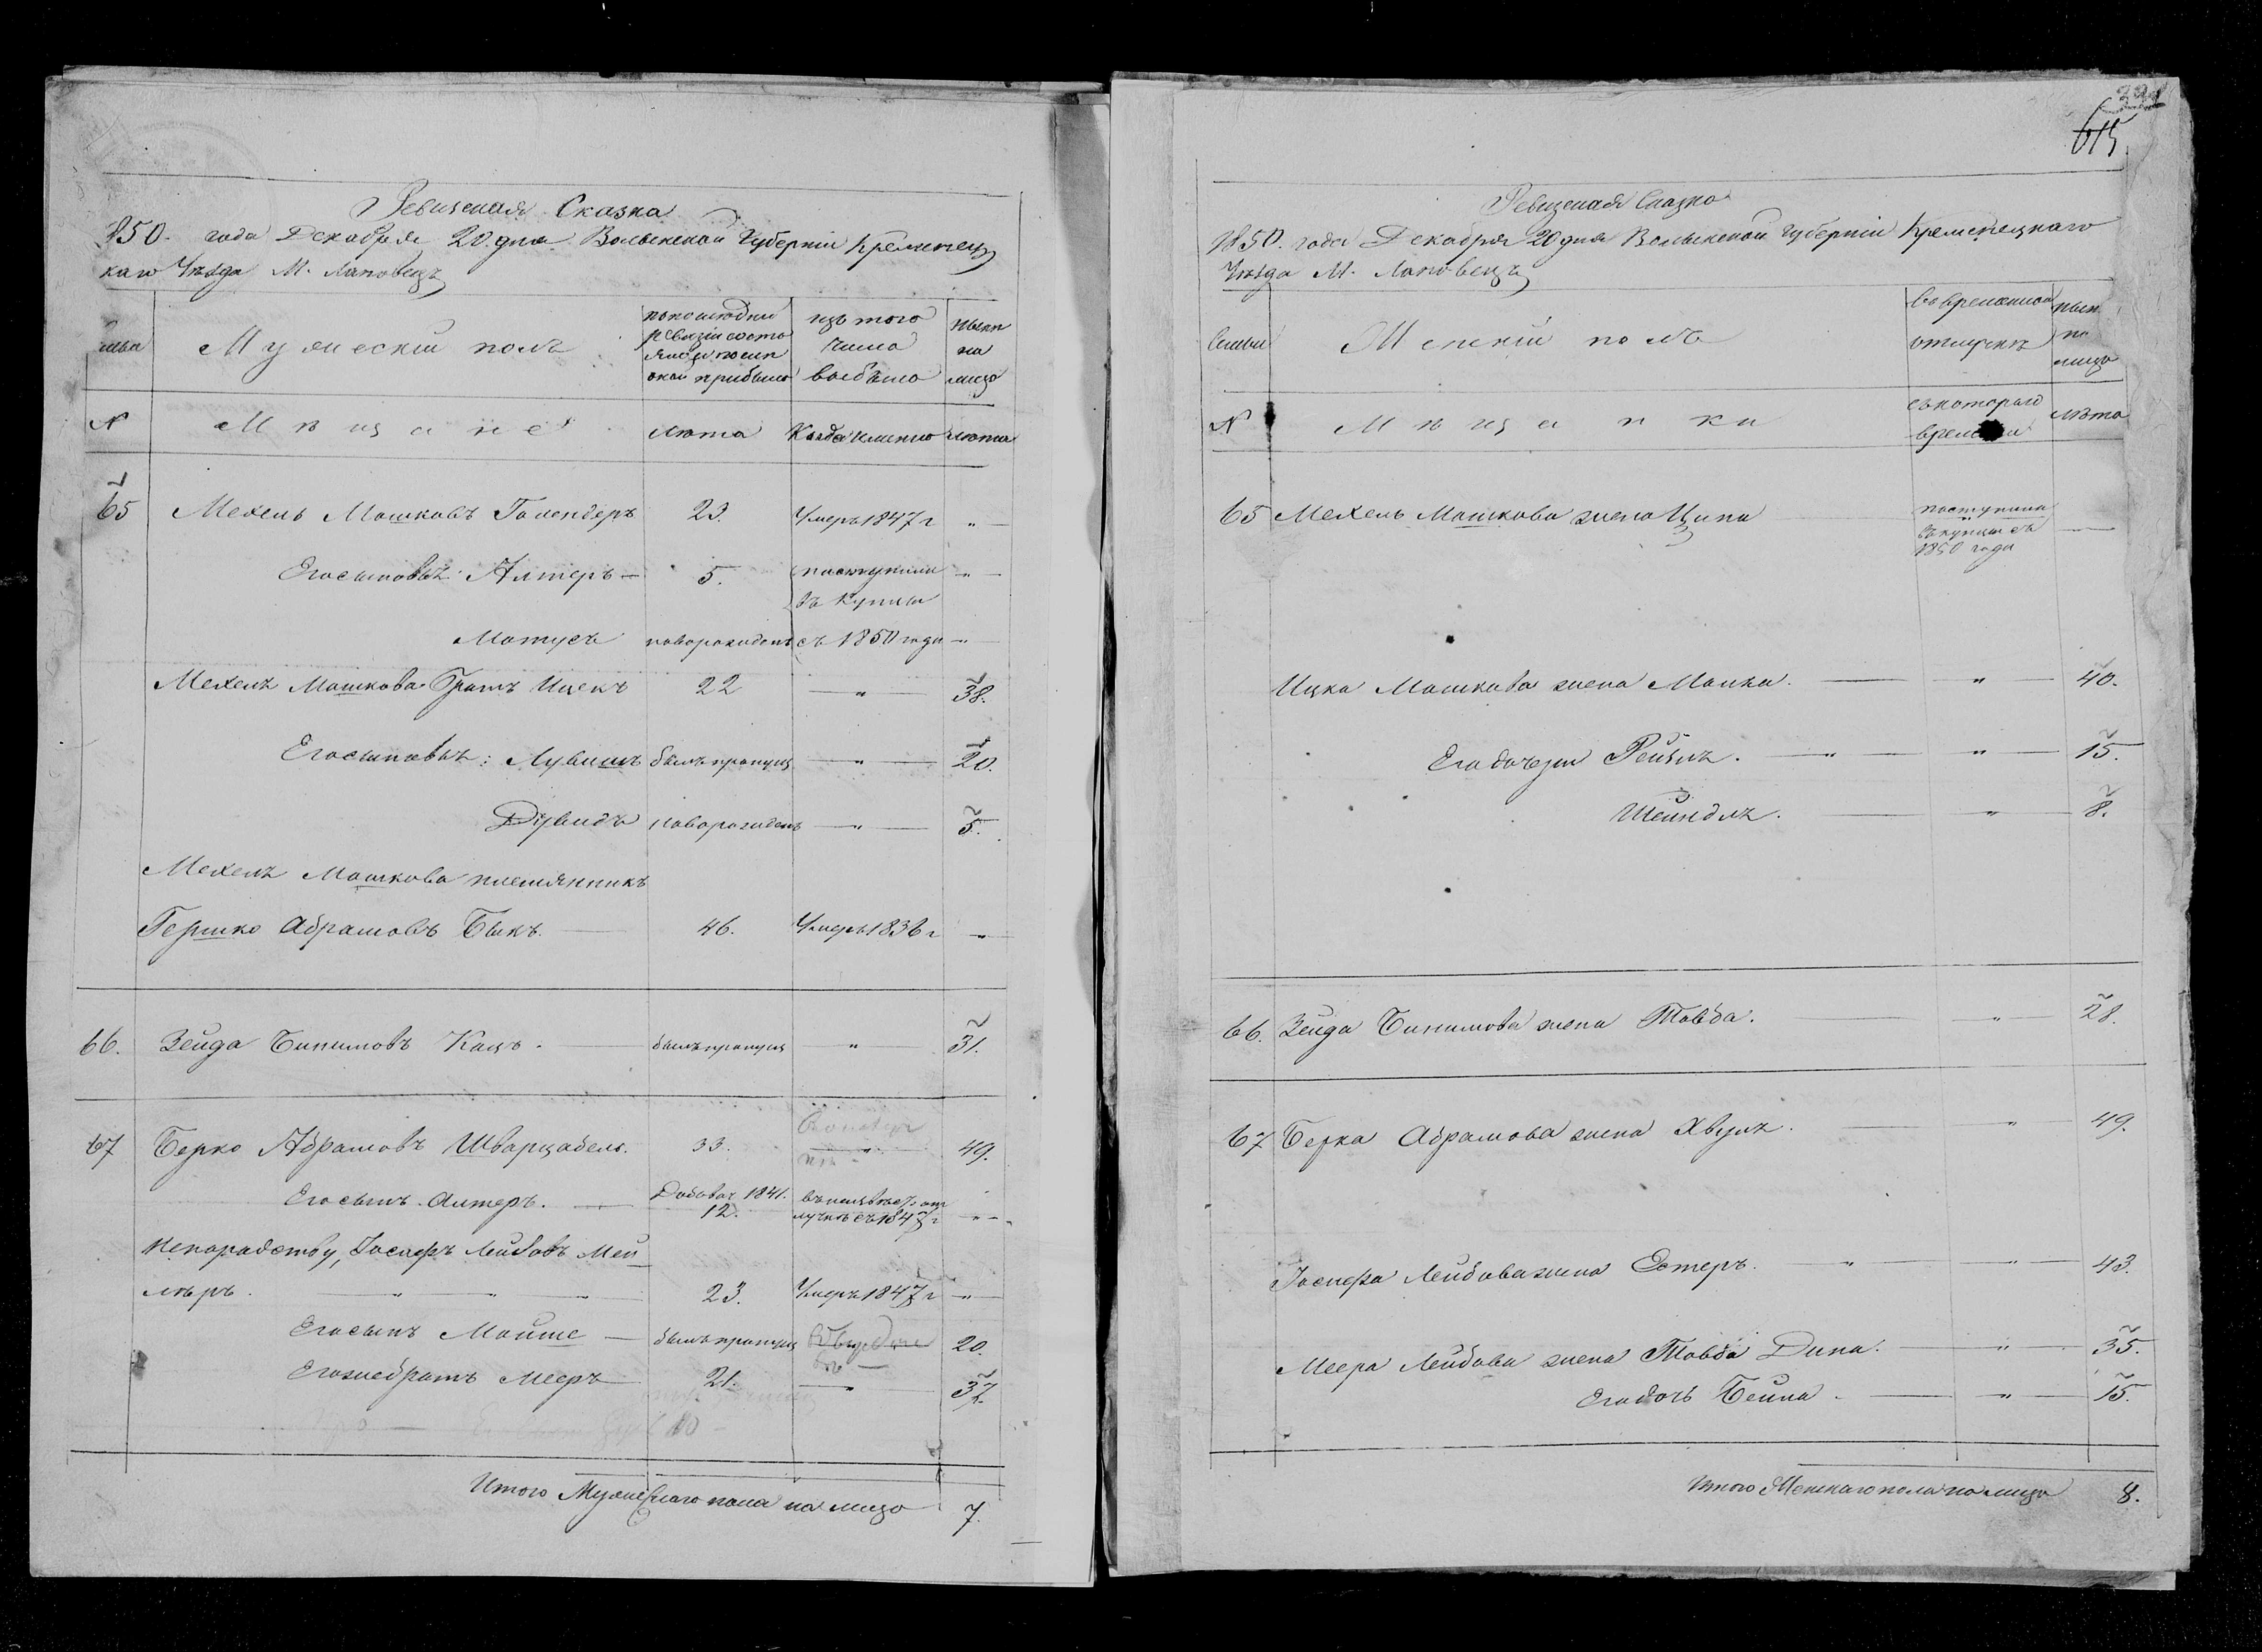 Ревизская Сказка
1850. года Декабря 20 дня Волынской Губерніи Кременец
каго Уѣзда М. Лановецъ
Мужескій полъ
по последней
ревизіи состо
яло и после
оной прибыло
изъ того
числа
выбыло
нынѣ
на
лицо
№
Мѣщане
лѣта
Когда именно
лѣта
65
Мехель Мошковъ Голендеръ
23.
Умеръ 1847 г
"
Его сыновья: Алтеръ
5.
поступили
въ купцы
"
Мотусъ
новорожденъ
съ 1850 года
"
Мехеля Мошкова братъ Ицекъ
22
"
38.
Его сыновья: Лувишъ
былъ пропущ
"
20.
Дувидъ
новорожденъ
"
5.
Мехеля Мошкова племянникъ
Гершко Абрамовъ Быкъ.
46.
Умеръ 1836 г
"
66.
Зейда Бинимовъ Кацъ.
былъ пропущ
"
31.
67
Берко Абрамовъ Шварцабель.
33.
"
49.
Его сынъ Алтеръ.
Добавоч 1841.
12.
лучкѣ съ 1847 г
"
По породству, Іосифъ Лейбовъ Мей
леръ.
23.
Умеръ 1847 г
"
Его сынъ Мойше
былъ пропущ
20.
Его же братъ Мееръ
21.
"
37.
Итого Мужескаго пола на лицо
7.
615
Ревизская Сказка
1850. года Декабря 20 дня Волынской Губерніи Кременецкаго
Уѣзда М. Лановецъ
Семьи
Женскій полъ
во временной
отлучкѣ
нын
на
лицо
№
Мѣщанки
съ котораго
времени
лѣта
65
Мехеля Мошкова жена Ципа
поступила
въ купцы съ
1850 года
Ицка Мошкова жена Малка.
"
40.
Его дочери Рейзля.
"
15.
Шейндля.
"
8.
66.
Зейда Бинимова жена Товба.
"
28.
67
Берка Абрамова жена Хвуля.
"
49.
Іосифа Лейбова жена Естеръ.
"
43.
Меера Лейбова жена Товба Дина.
"
35.
Его дочь Бейла.
"
15.
Итого Женскаго пола на лицо
8.